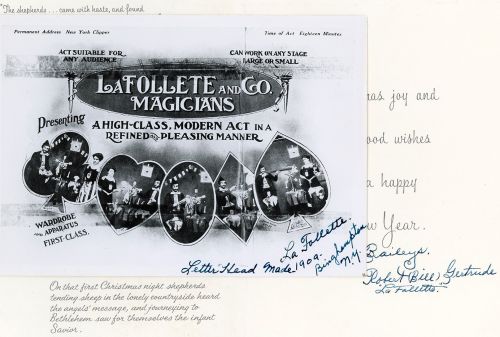 "The shepherds . . . came with haste, and found
Permanent Address New York Clipper
Time of Act Eighteen Minutes
ACT SUITABLE FOR
ANY AUDIENCE
CAN WORK ON ANY STAGE
LARGE OR SMALL
LAFOLLETE AND CO.
MAGICIANS
Presenting
A HIGH-CLASS, MODERN ACT IN A
REFINED AND PLEASING MANNER
WARDROBE
AND APPARATUS
FIRST-CLASS.
as joy and
ood wishes
a happy
w Year.
La Follette.
Letter Head Made 1909.
Binghampton
N.Y.
Baileys.
Robert (Bill) Gertrude
"La Follette"
On that first Christmas night shepherds
tending sheep in the lonely countryside heard
the angels' message, and journeying to
Bethlehem saw for themselves the infant
Savior.